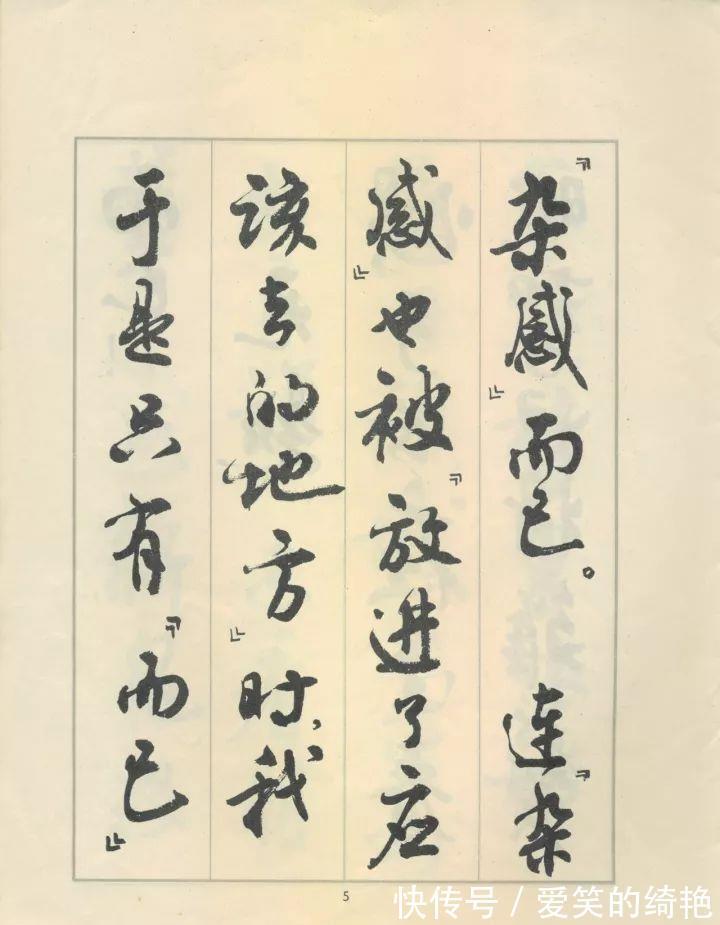 『杂感』而已。连『杂
感』也被『放进了应
该去的地方』时,我
于是只有『而已』
5
快传号 / 爱笑的绮艳